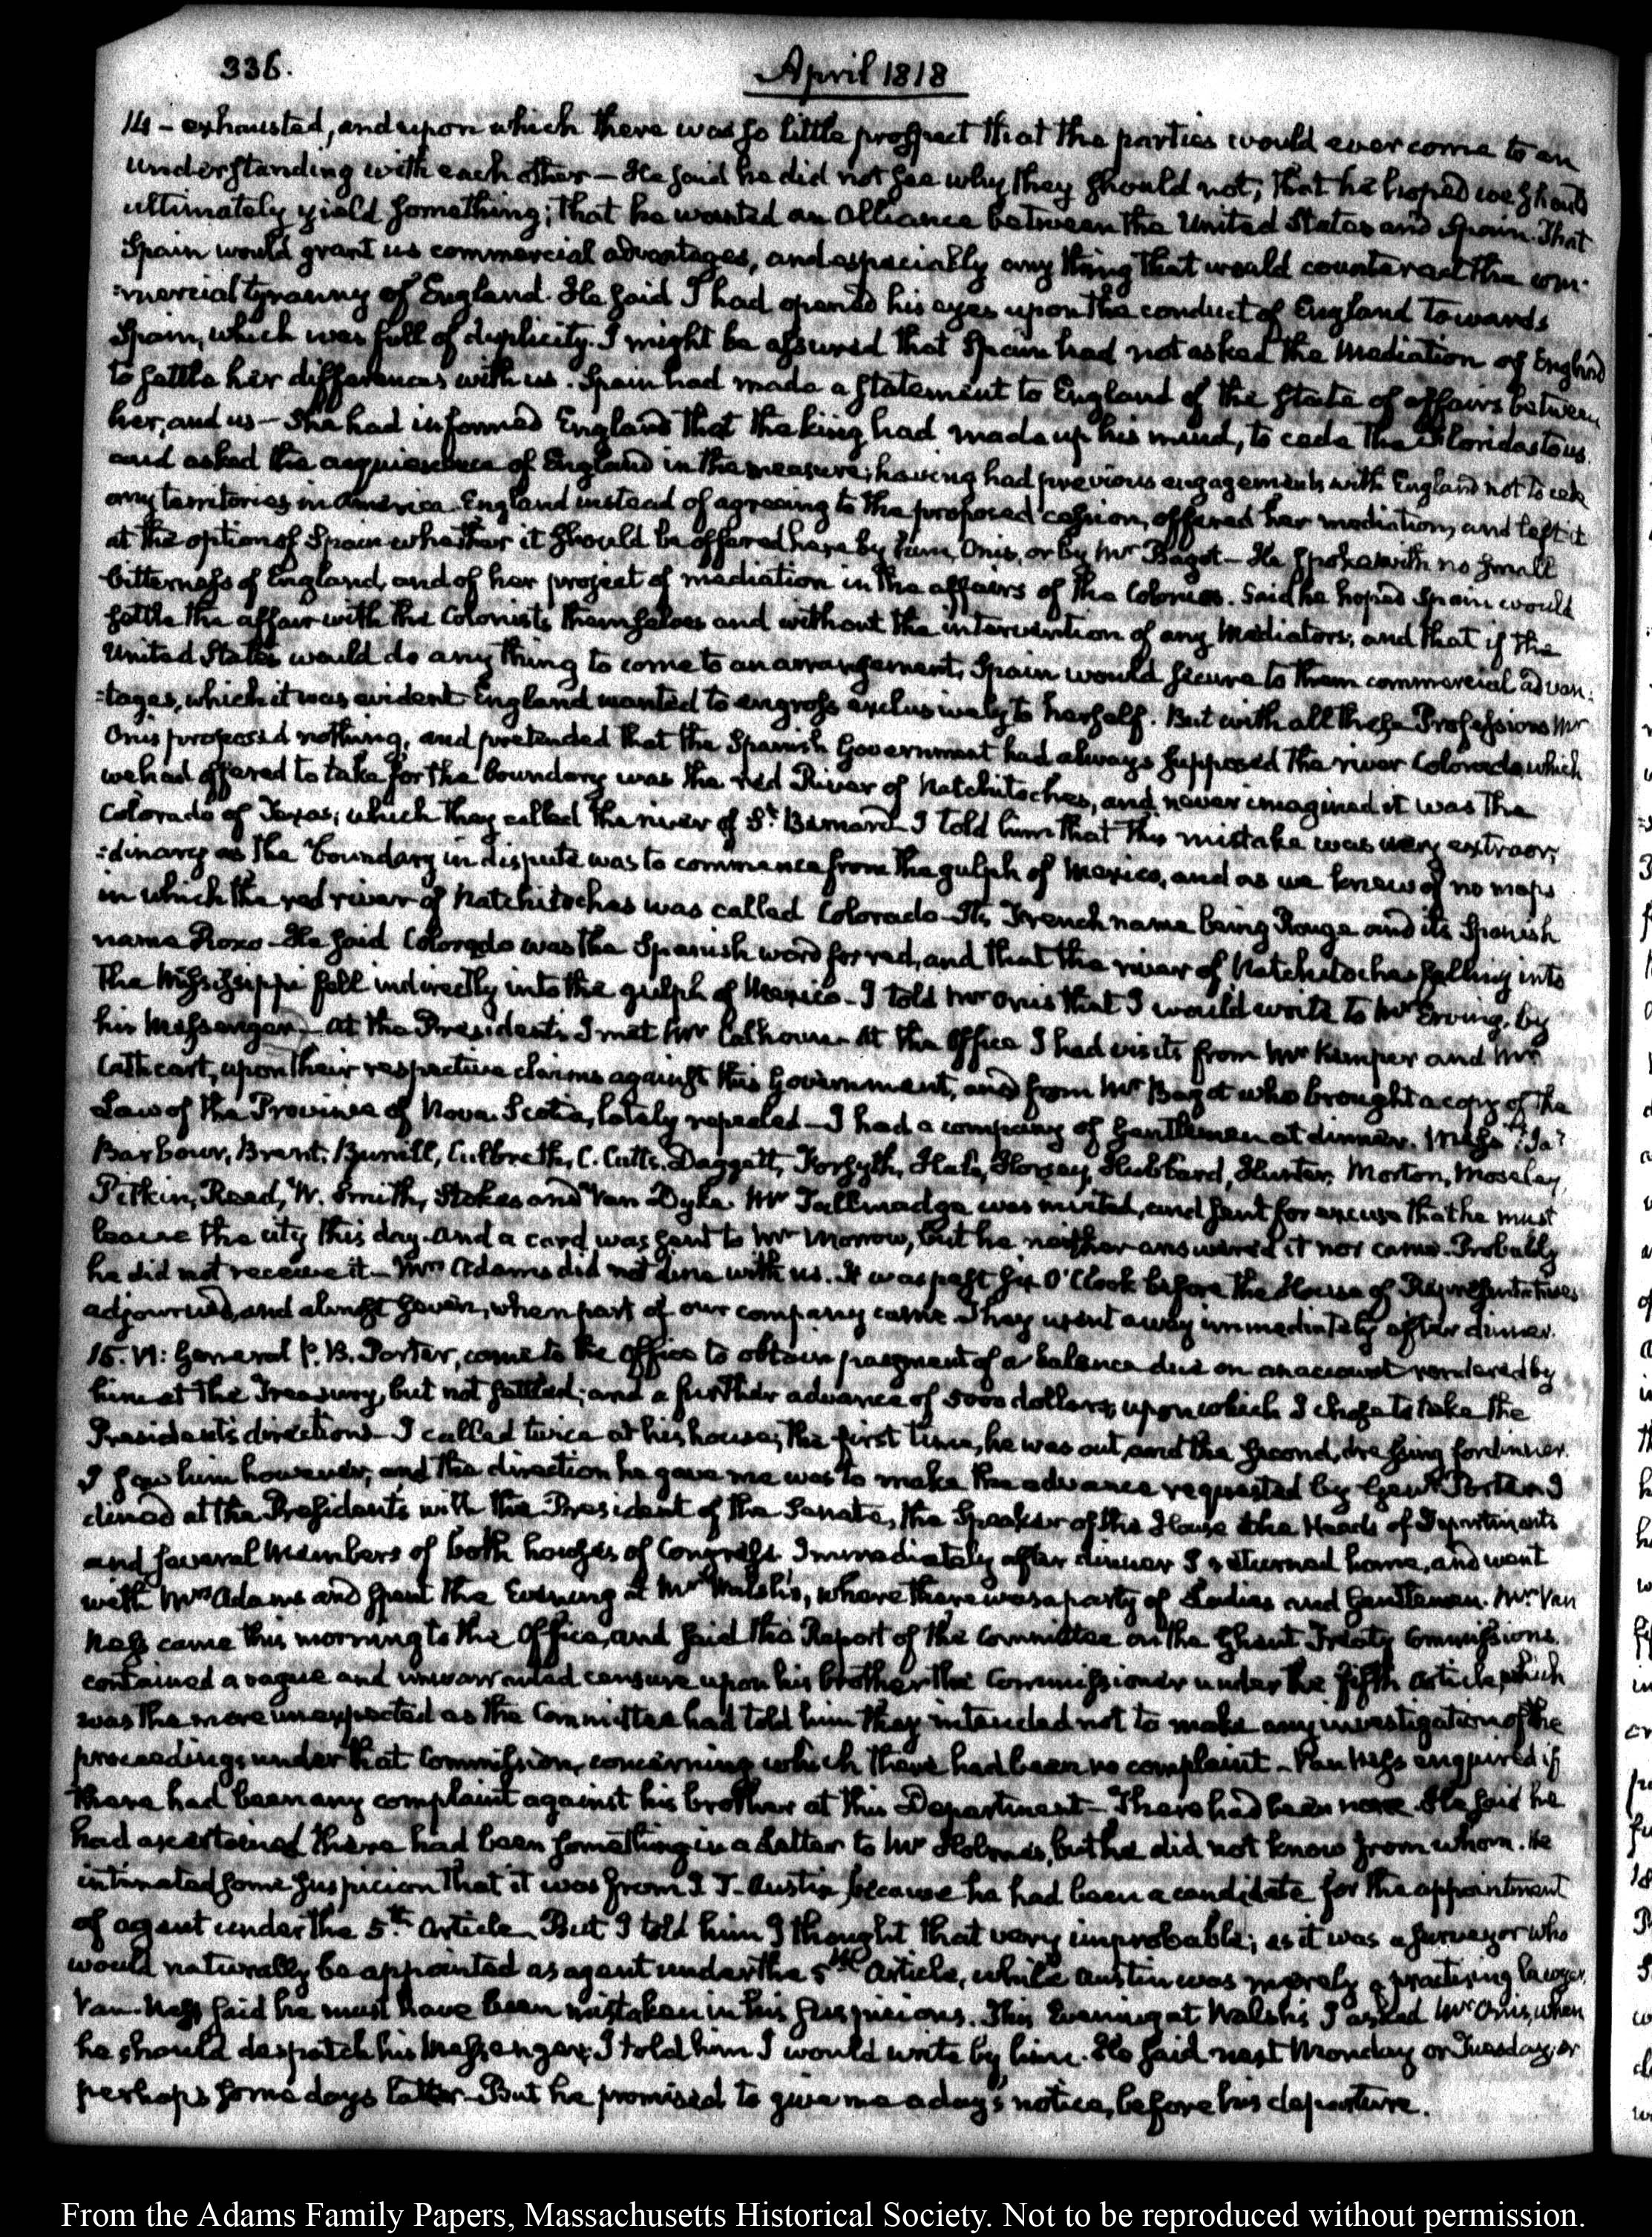 336.
April 1818
14 - exhausted, and upon which there was so little prospect that the parties would ever come to an
understanding with each other — He said he did not see why they should not; that he hoped we should
ultimately yield something; that he wanted an Alliance between the United States and Spain. That
Spain would grant us commercial advantages, and especially any thing that would counteract the com-
=mercial tyranny of England. He said I had opened his eyes upon the conduct of England towards
Spain, which was full of duplicity. I might be assured that Spain had not asked the Mediation of England
to settle her differences with us. Spain had made a statement to England of the state of affairs between
her, and us — She had informed England that the king had made up his mind, to cede the Floridas to us.
and asked the acquiescence of England in the measure; having had previous engagements with England not to cede
any territories in America. England instead of agreeing to the proposed cession, offered her mediation, and left it
at the option of Spain whether it should be offered here by him, Onis, or by Mr Bagot — He spoke with no small
bitterness of England, and of her project of mediation in the affairs of the Colonies. Said he hoped Spain would
settle the affair with the Colonists themselves and without the intervention of any Mediators; and that if the
United States would do any thing to come to an arrangement, Spain would secure to them commercial advan-
=tages, which it was evident England wanted to engross exclusively to herself. But with all these Professions Mr
Onis proposed nothing, and pretended that the Spanish Government had always supposed the river Colorado which
we had offered to take for the boundary was the red River of Natchitoches, and never imagined it was the
Colorado of Texas; which they called the river of St. Bernard — I told him that this mistake was very extraor-
=dinary as the boundary in dispute was to commence from the gulph of Mexico, and as we knew of no maps
in which the red river of Natchitoches was called Colorado — Its French name being Rouge and its Spanish
name Roxo — He said Colorado was the Spanish word for red, and that the river of Natchitoches falling into
the Mississippi fell indirectly into the gulph of Mexico — I told Mr Onis that I would write to Mr Erving, by
his Messenger — At the President's I met Mr Calhoun — At the Office I had visits from Mr Kemper and Mr
Cathcart, upon their respective claims against this Government, and from Mr Bagot who brought a copy of the
Law of the Province of Nova-Scotia, lately repealed — I had a company of Gentlemen at dinner. Messrs. Ja:s
Barbour, Brent, Burrill, Culbreth, C. Cutts, Daggett, Forsyth, Hale, Horsey, Hubbard, Hunter, Morton, Moseley,
Pitkin, Reed, W. Smith, Stokes and Van Dyke. Mr Tallmadge was invited, and sent for excuse that he must
leave the city this day. And a card was sent to Mr Morrow, but he neither answered it nor came. Probably
he did not receive it — Mrs Adams did not dine with us. It was past six O'Clock before the House of Representatives
adjourned, and almost seven, when part of our company came. They went away immediately after dinner.
15. VI: General P. B. Porter, came to the Office to obtain payment of a balance due on an account rendered by
him at the Treasury, but not settled; and a further advance of 5000 dollars, upon which I chose to take the
President's directions — I called twice at his house; the first time, he was out, and the second, dressing for dinner.
I saw him however, and the direction he gave me was to make the advance requested by Genl. Porter. I
dined at the President's with the President of the Senate, the Speaker of the House & the Heads of Departments
and several Members of both houses of Congress. Immediately after dinner I returned home, and went
with Mrs Adams and spent the Evening at Mr Walsh's, where there was a party of Ladies and Gentlemen. Mr Van
Ness came this morning to the Office, and said the Report of the Committee on the Ghent Treaty Commissions
contained a vague and unwarranted censure upon his brother the Commissioner under the fifth Article, which
was the more unexpected as the Committee had told him they intended not to make any investigation of the
proceedings under that Commission, concerning which there had been no complaint — Van Ness enquired if
there had been any complaint against his brother at this Department — There had been none. He said he
had ascertained there had been something in a Letter to Mr Holmes, but he did not know from whom. He
intimated some suspicion that it was from I T. Austin, because he had been a candidate for the appointment
of agent under the 5th. Article — But I told him I thought that very improbable; as it was a surveyor who
would naturally be appointed as agent under the 5th Article, while Austin was merely a practising lawyer.
Van-Ness said he must have been mistaken in his suspicions. This Evening at Walsh's I asked Mr Onis, when
he should despatch his Messenger; I told him I would write by him. He said next Monday or Tuesday, or
perhaps some days later — But he promised to give me a day's notice, before his departure.
From the Adams Family Papers, Massachusetts Historical Society. Not to be reproduced without permission.